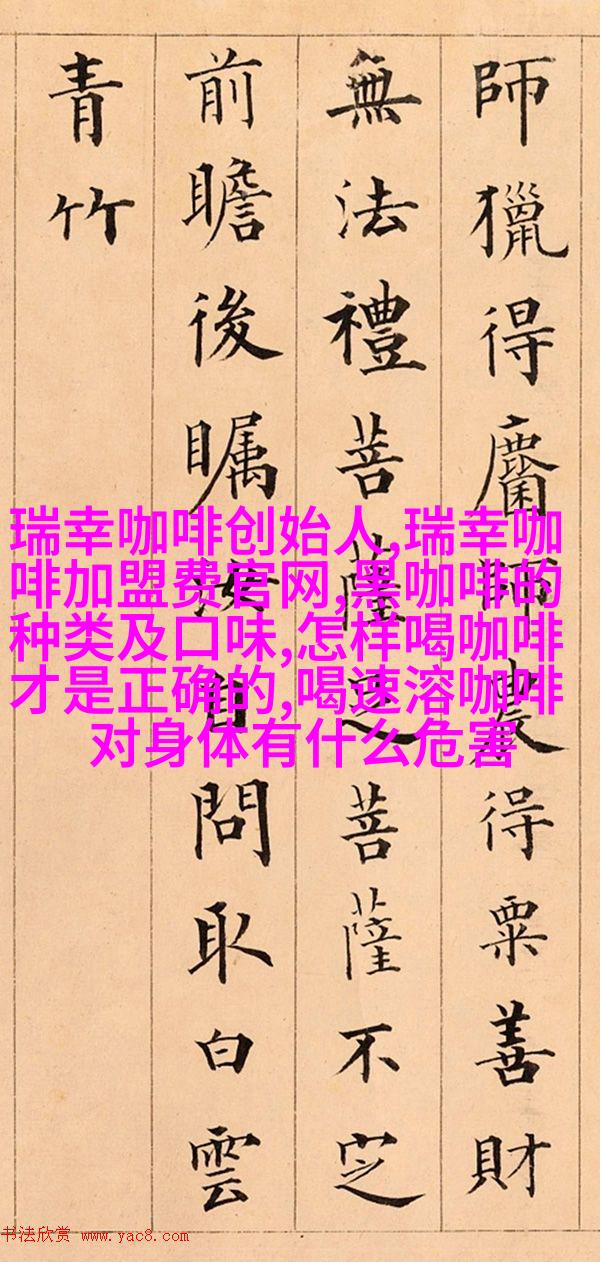 師獵得麕師農得粟善財
無法禮菩薩足菩薩不定
前瞻後矚汝自問取白雲
青竹
瑞幸咖啡创始人,瑞幸咖
啡加盟费官网,黑咖啡的
种类及口味,怎样喝咖啡
才是正确的,喝速溶咖啡
对身体有什么危害
书法欣赏 www.yac8.com